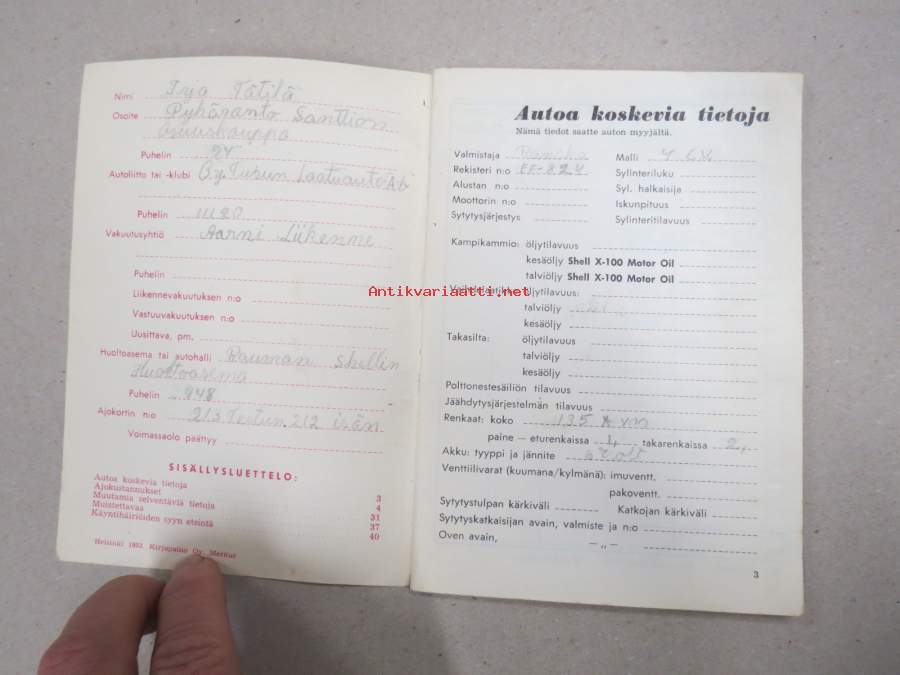 Nimi Irja Tätilä
Osoite Pyhäranto Santtion
osuuskauppa
Puhelin 24
Autoliitto tai -klubi O.y. Turun Laatuauto A.b
Puhelin 11120
Vakuutusyhtiö Aarni Liikenne
Puhelin
Liikennevakuutuksen n:o
Vastuuvakuutuksen n:o
Uusittava, pm.
Huoltoasema tai autohalli Rauman Shellin
Huoltoasema
Puhelin 248
Ajokortin n:o 213
Voimassaolo päättyy
SISÄLLYSLUETTELO:
Autoa koskevia tietoja 3
Ajokustannukset 4
Muutamia selventäviä tietoja 31
Muistettavaa 37
Käyntihäiriöiden syyn etsintä 40
Helsinki 1953. Kirjapaino Oy. Merkur
Autoa koskevia tietoja
Nämä tiedot saatte auton myyjältä.
Valmistaja Malli 4 CV
Rekisteri n:o EF-824 Sylinteriluku
Alustan n:o Syl. halkaisija
Moottorin n:o Iskunpituus
Sytytysjärjestys Sylinteritilavuus
Kampikammio: öljytilavuus
kesäöljy Shell X-100 Motor Oil
talviöljy Shell X-100 Motor Oil
Vaihdelaatikko: öljytilavuus:
talviöljy
kesäöljy
Takasilta: öljytilavuus
talviöljy
kesäöljy
Polttonestesäiliön tilavuus
Jäähdytysjärjestelmän tilavuus
Renkaat: koko 135
paine — eturenkaissa 1, takarenkaissa 2,
Akku: tyyppi ja jännite 6 volt
Venttiilivarat (kuumana/kylmänä): imuventt.
pakoventt.
Sytytystulpan kärkiväli Katkojan kärkiväli
Sytytyskatkaisijan avain, valmiste ja n:o
Oven avain, — „ —
3
Antikvariaatti.net